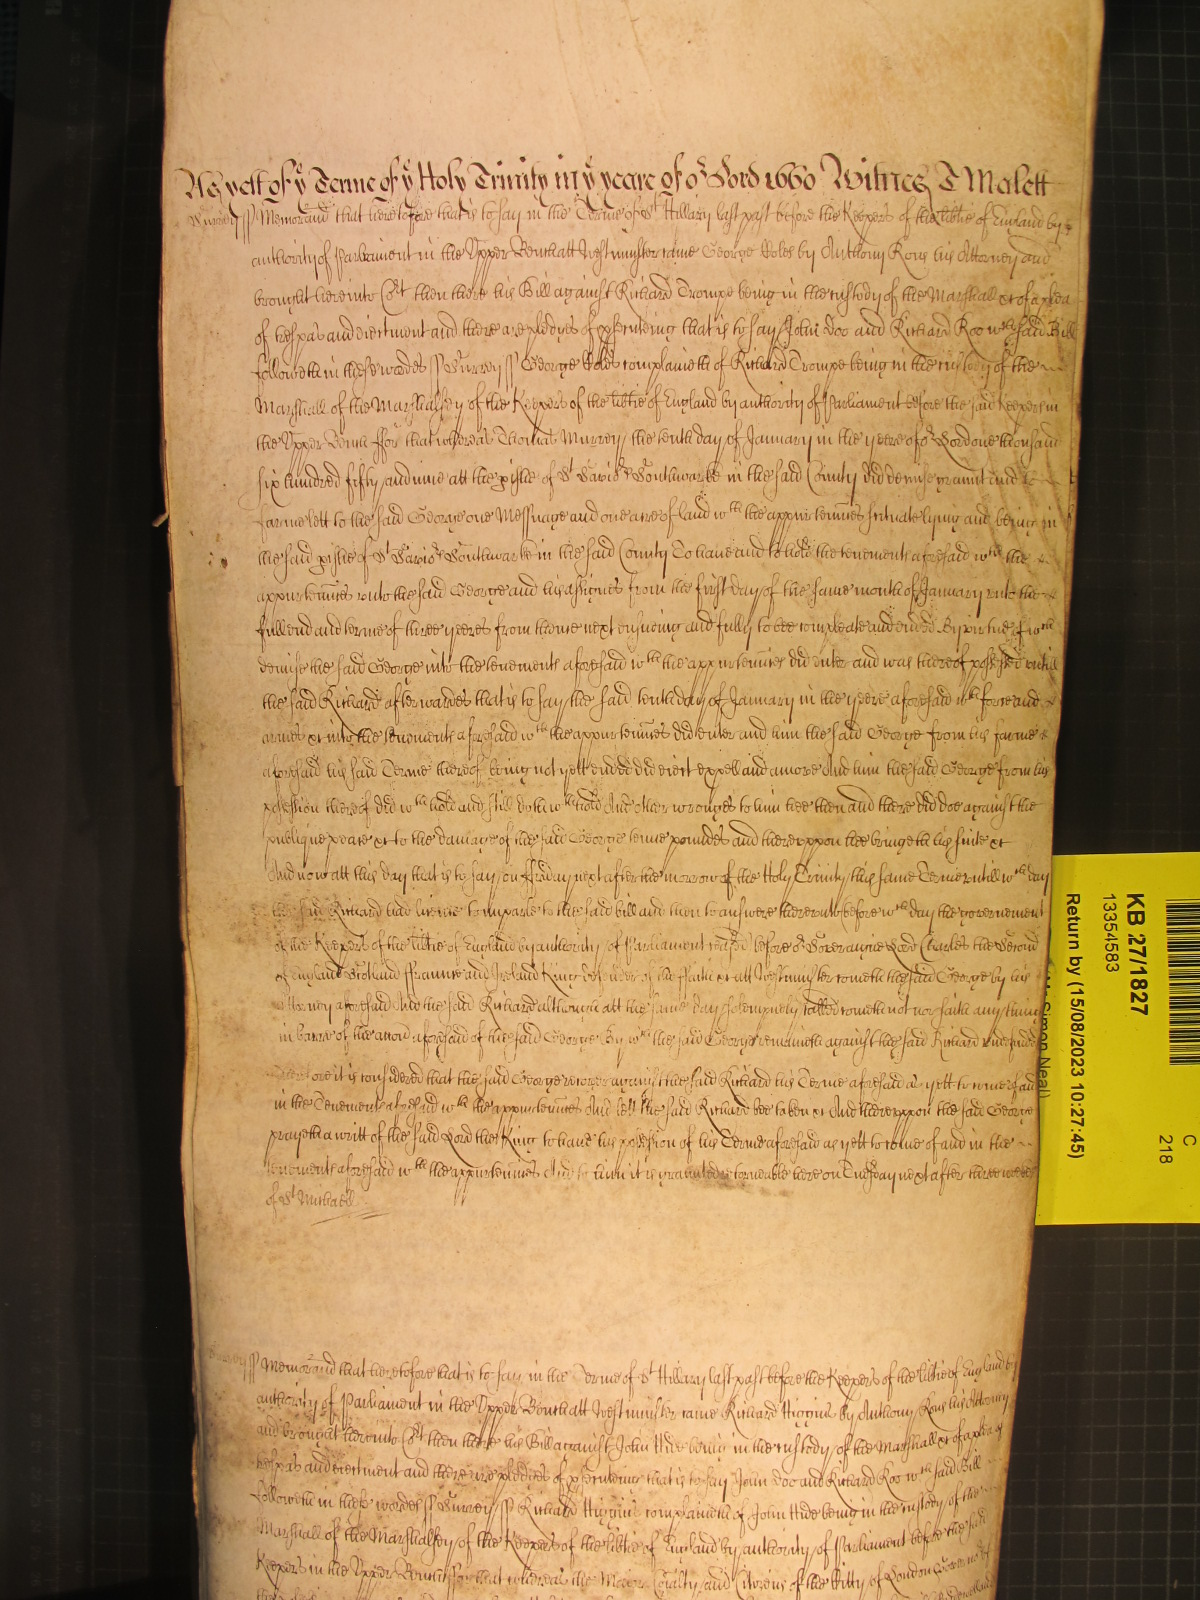 As yett of yͤ Terme of yͤ Holy Trinity in yͤ yeare of oʳ Lord 1660 Witnes T Malett
Surrey ss Memorand that heretofore that is to say in the Terme of Sᵗ Hillary last past before the Keepers of the libtie of England by
authority of Parliament in the Upper Bench att Westminster came George Coles by Anthony Rous his Attorney and
brought here into Coʳt then there his Bill against Richard Trompe being in the custody of the Marshall &c of a plea
of trespas and eiectment and there are pledges of psecuteing that is to say John Doo and Richard Roo wᶜʰ said Bill
followeth in these wordes ss Surrey ss George Coles complaineth of Richard Trompe being in the custody of the
Marshall of the Marshalsey of the Keepers of the libtie of England by authority of Parliament before the said Keepers in
the Upper Bench For that whereas Thomas Murrey the tenth day of January in the yeere of oʳ Lord one thousand
six hundred fifty and nine att the pishe of Sᵗ Savioʳˢ Southwarke in the said County did demise graunt and to
farme lett to the said George one Messuage and one acre of land wᵗʰ the appurtennces scituate lying and being in
the said pishe of Sᵗ Savioʳˢ Southwarke in the said County To have and to hold the tenements aforesaid wᵗʰ the
appurtennces unto the said George and his assignes from the first day of the same month of January unto the
full end and terme of three yeeres from thence next ensueing and fully to bee compleate and ended By virtue of wᶜʰ
demise the said George into the tenements aforesaid wᵗʰ the appurtennces did enter and was thereof possessed untill
the said Richard afterwardes that is to say the said tenth day of January in the yeere aforesaid wᵗʰ force and
armes &c into the tenements aforesaid wᵗʰ the appurtennces did enter and him the said George from his farme
aforesaid his said Terme thereof being not yett ended did eiect expell and amove And him the said George from his
possession thereof did wᵗʰhold and still doth wᵗʰhold And other wronges to him hee then and there did doe against the
publique peace &c to the damage of the said George tenne poundes and thereuppon hee bringeth his suite &c
And now att this day that is to say on Fryday next after the morrow of the Holy Trinity this same Terme untill wᶜʰ day
the said Richard had licence to imparle to the said bill and then to answere thereunto before wᶜʰ day the governement
of the Keepers of the libtie of England by authority of Parliament ceased before oʳ Soveraigne Lord Charles the Second
of England Scotland Fraunce and Ireland King Defender of the Faith &c att Westminster cometh the said George by his
Attorney aforesaid And the said Richard although att the same day solempnely called cometh not nor saith any thing
in barre of the accon aforesaid of the said George By wᶜʰ the said George remaineth against the said Richard undefended
Therefore it is considered that the said George recover against the said Richard his Terme aforesaid as yett to come of and
in the Tenements aforesaid wᵗʰ the appurtennces And lett the said Richard bee taken &c And thereuppon the said George
prayeth a writt of the said Lord the King to have his possession of his Terme aforesaid as yett to come of and in the
tenements aforesaid wᵗʰ the appurtennces And to him it is graunted retorneable here on Tuesday next after three weekes
of Sᵗ Michaell
Surrey ss Memorand that heretofore that is to say in the Terme of Sᵗ Hillary last past before the Keepers of the libtie of England by
authority of Parliament in the Upper Bench att Westminster came Richard Higgins by Anthony Rous his Attorney
and brought here into Coʳt then there his Bill against John Hide being in the custody of the Marshall &c of a plea of
trespas and eiectment and there are pledges of psecuteing that is to say John Doo and Richard Roo wᶜʰ said Bill
followeth in these wordes ss Surrey ss Richard Higgins complaineth of John Hide being in the custody of the
Marshall of the Marshalsey of the Keepers of the libtie of England by authority of Parliament before the said
Keepers in the Upper Bench For that whereas the Maior Coialty and Citizens of the Citty of London
KB 27/1827
13354583
Return by (15/08/2023 10:27:45)
Simon Neal)
C
218